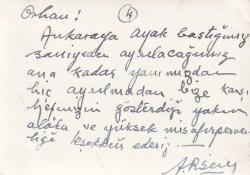 Orhan! (4)
Ankaraya ayak bastığımız
saniyeden ayrılacağımız
ana kadar yanımızdan
hiç ayrılmadan bize karşı
hepinizin gösterdiği yakın
alâka ve yüksek misafirperver
liğe teşekkür ederiz